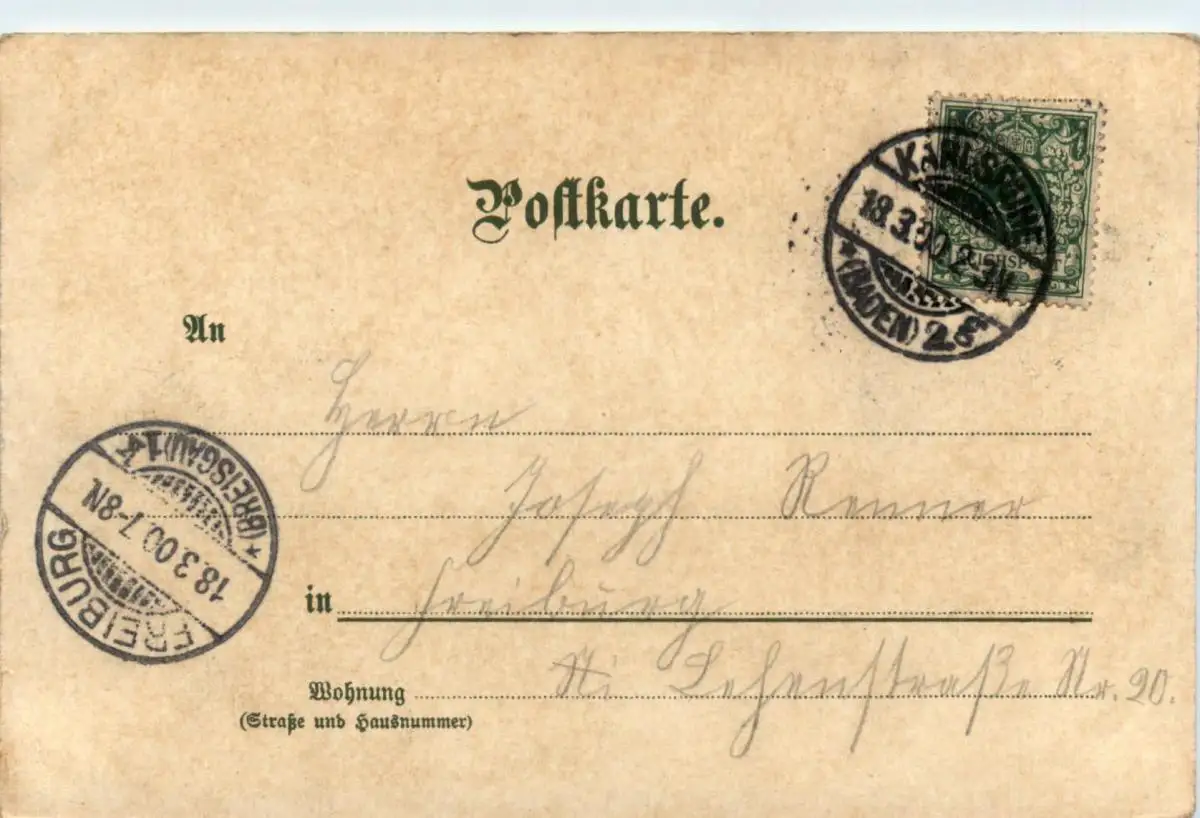 Postkarte.
KARLSRUHE
18.3.00.2-3N.
* (BADEN) 2.
REICHSPOST
An
Herrn
Joseph Renner
in Freiburg
Wohnung Lehenstraße Nr. 20.
(Straße und Hausnummer)
FREIBURG
18.3.00.7-8N.
* (BREISGAU) 1 k